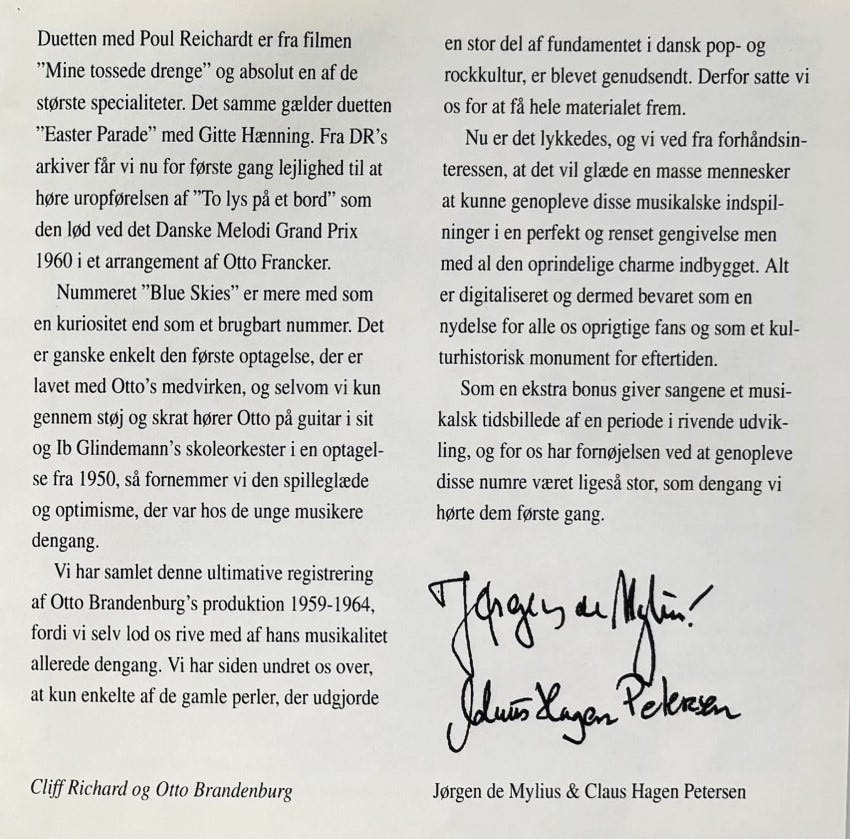 Duetten med Poul Reichardt er fra filmen
”Mine tossede drenge” og absolut en af de
største specialiteter. Det samme gælder duetten
”Easter Parade” med Gitte Hænning. Fra DR’s
arkiver får vi nu for første gang lejlighed til at
høre uropførelsen af ”To lys på et bord” som
den lød ved det Danske Melodi Grand Prix
1960 i et arrangement af Otto Francker.
Nummeret ”Blue Skies” er mere med som
en kuriositet end som et brugbart nummer. Det
er ganske enkelt den første optagelse, der er
lavet med Otto’s medvirken, og selvom vi kun
gennem støj og skrat hører Otto på guitar i sit
og Ib Glindemann’s skoleorkester i en optagel-
se fra 1950, så fornemmer vi den spilleglæde
og optimisme, der var hos de unge musikere
dengang.
Vi har samlet denne ultimative registrering
af Otto Brandenburg’s produktion 1959-1964,
fordi vi selv lod os rive med af hans musikalitet
allerede dengang. Vi har siden undret os over,
at kun enkelte af de gamle perler, der udgjorde
Cliff Richard og Otto Brandenburg
en stor del af fundamentet i dansk pop- og
rockkultur, er blevet genudsendt. Derfor satte vi
os for at få hele materialet frem.
Nu er det lykkedes, og vi ved fra forhåndsin-
teressen, at det vil glæde en masse mennesker
at kunne genopleve disse musikalske indspil-
ninger i en perfekt og renset gengivelse men
med al den oprindelige charme indbygget. Alt
er digitaliseret og dermed bevaret som en
nydelse for alle os oprigtige fans og som et kul-
turhistorisk monument for eftertiden.
Som en ekstra bonus giver sangene et musi-
kalsk tidsbillede af en periode i rivende udvik-
ling, og for os har fornøjelsen ved at genopleve
disse numre været ligeså stor, som dengang vi
hørte dem første gang.
Jørgen de Mylius!
Hagen Petersen
Jørgen de Mylius & Claus Hagen Petersen